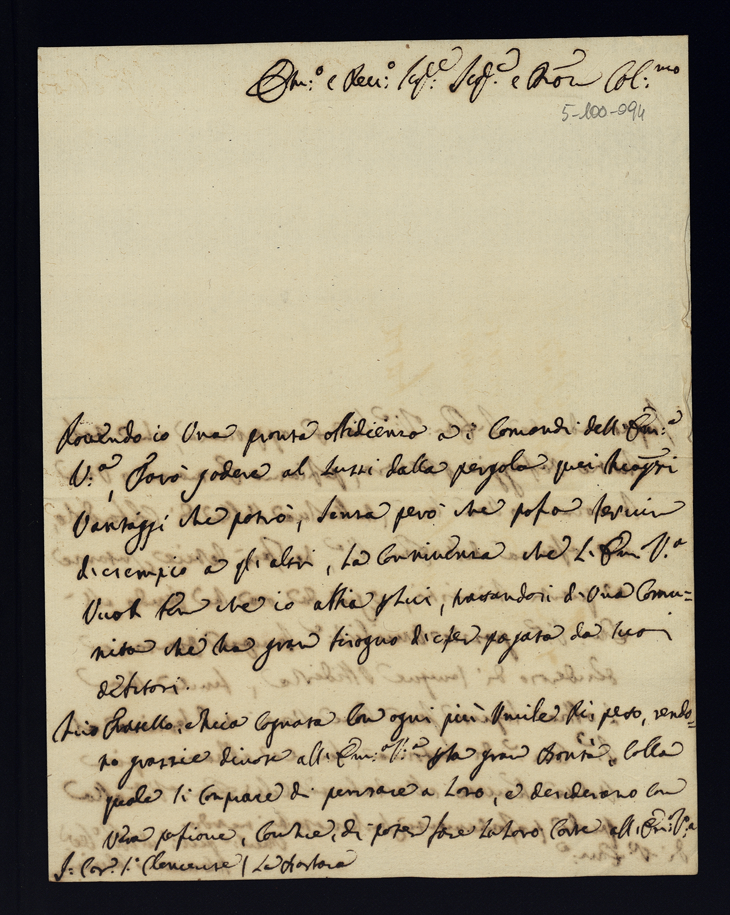 Em:º e Reu:º Sig:re Sig:re e Pròn Col:mo
5-100-094
Dovendo io Una pronta obbidienza a i Comandi dell'Em:a
V:a, Farò godere al Lussi dalla pergola quei
Vantaggi che potrò, senza però che possa servire
di esempio a gli altri, La Connivenza che L'Em: V:a
Vuole che io abbia p lui, trattandosi di Una Comu=
nità che ha gran bisogno di esser pagata da suoi
debitori.
Mio Fratello, e Mia Cognata Con ogni più Umile Rispetto, rendo=
no grazzie divote all'Em:a V:a p la gran Bontà, Colla
quale si Compiace di pensare a Loro, e desiderano con
Vera passione, Com'hie, di poter fare La loro Corte all'Em: V:a